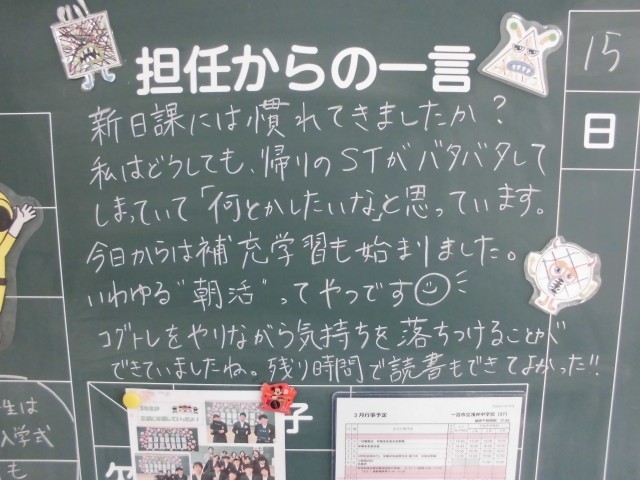 担任からの一言
新日課には慣れてきましたか?
私はどうしても、帰りのSTがバタバタして
しまっていて「何とかしたいな」と思っています。
今日からは補充学習も始まりました。
いわゆる"朝活"ってやつです
コグトレをやりながら気持ちを落ちつけることが
できていましたね。残り時間で読書もできてよかった!!
15
日
生は
入学式
も
子
欠
3月行事予定